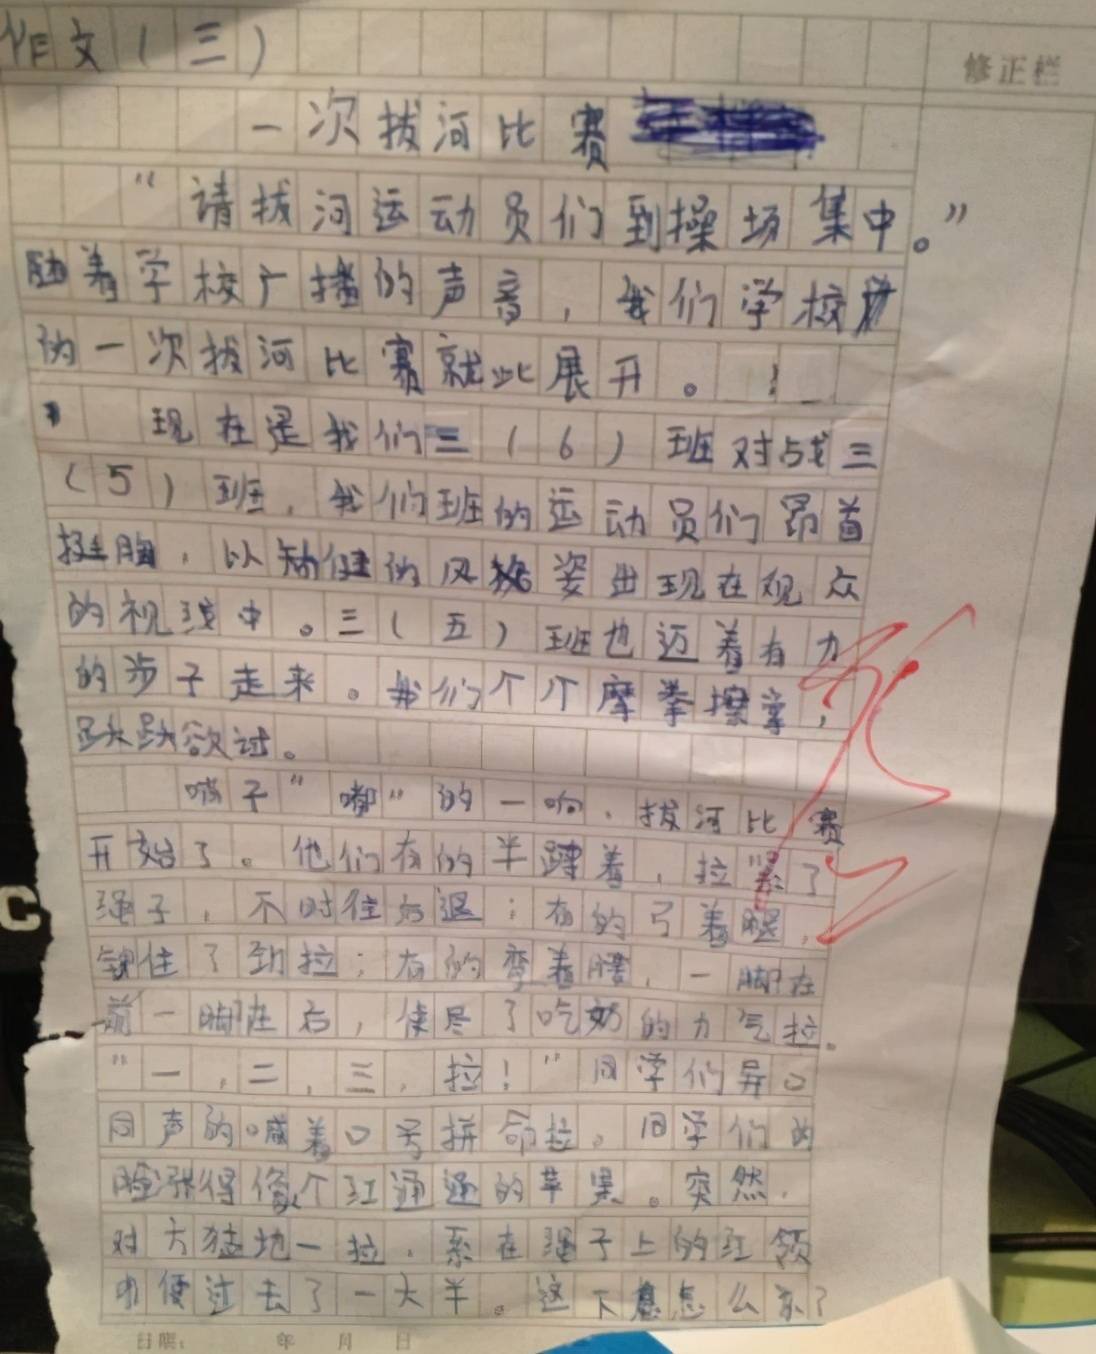 作文(三)
修正栏
一次拔河比赛
“请拔河运动员们到操场集中。”
随着学校广播的声音,我们学校
的一次拔河比赛就此展开。!
现在是我们三(6)班对战三
(5)班,我们班的运动员们昂首
挺胸,以矫健的风姿出现在观众
的视线中。三(五)班也迈着有力
的步子走来。我们个个摩拳擦掌,
跃跃欲试。
哨子“嘟”的一响,拔河比赛
开始了。他们有的半蹲着,拉紧了
绳子,不时往后退;有的弓着腿,
住了劲拉;有的弯着腰,一脚在
前一脚在后,使尽了吃奶的力气拉。
“一,二,三,拉!”同学们异口
同声的喊着口号拼命拉。同学们的
脸张得像个红通通的苹果。突然,
对方猛地一拉,系在绳子上的红领
巾便过去了一大半。这下怎么办?
日期: 年 月 日
C